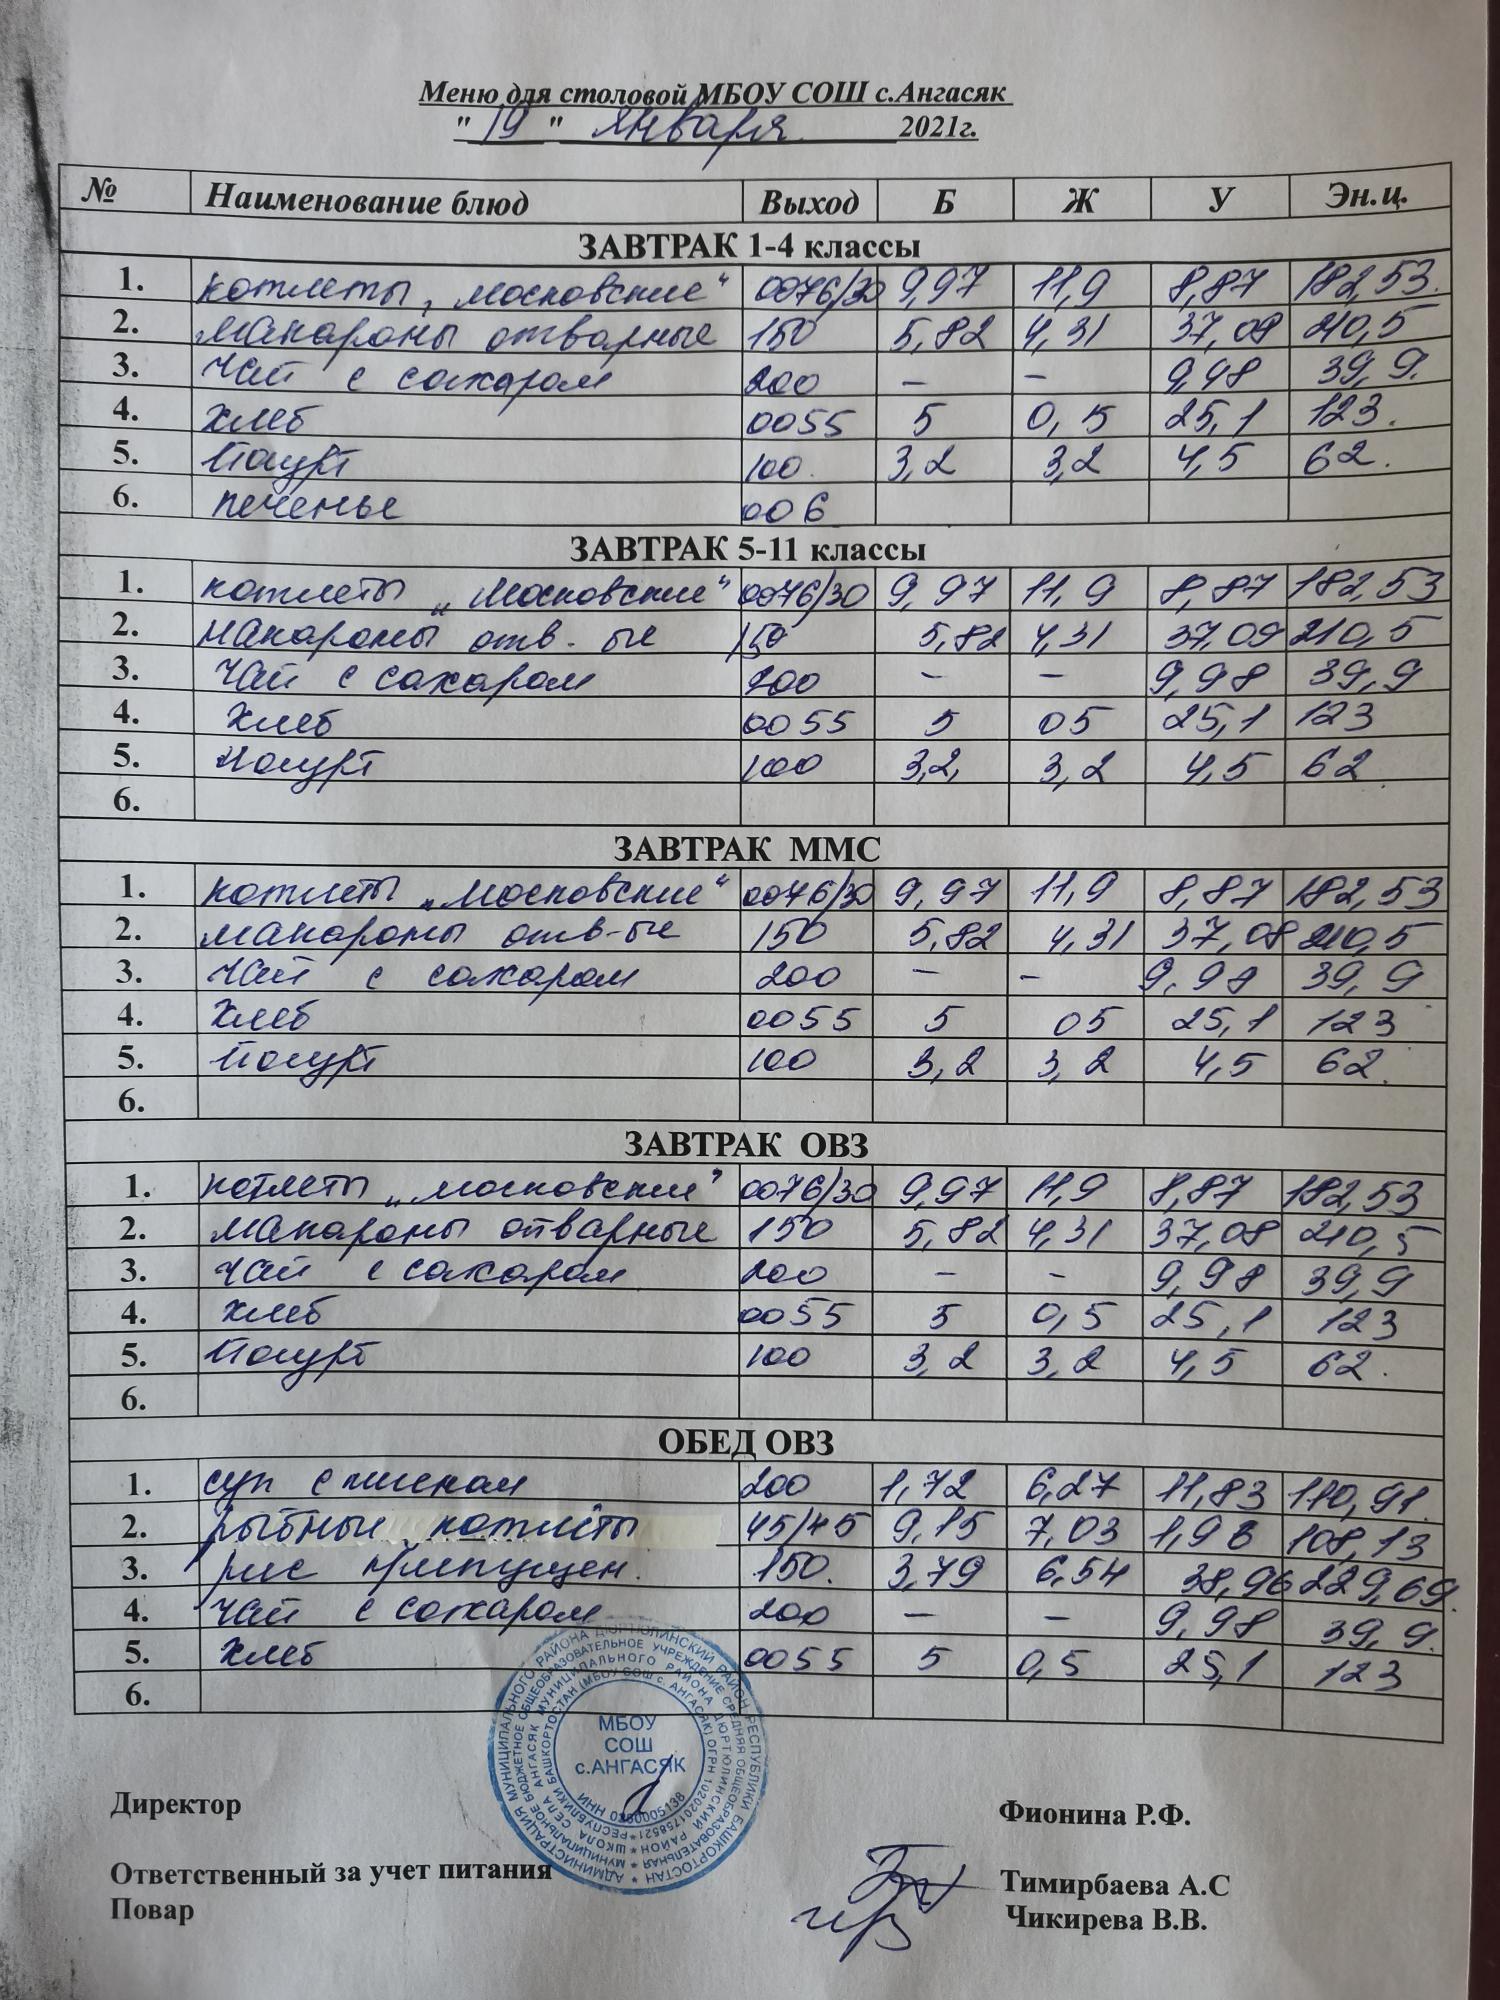 Меню для столовой МБОУ СОШ с.Ангасяк
" 19 " января 2021г.
№ Наименование блюд Выход Б Ж У Эн.ц.
ЗАВТРАК 1-4 классы
1. котлеты „московские“ 0076/30 9,97 11,9 8,87 182,53.
2. макароны отварные 150 5,82 4,31 37,08 210,5
3. Чай с сахаром 200 – – 9,98 39,9.
4. хлеб 0055 5 0,5 25,1 123.
5. Йогурт 100. 3,2 3,2 4,5 62.
6. печенье 006
ЗАВТРАК 5-11 классы
1. котлеты „Московские“ 0076/30 9,97 11,9 8,87 182,53
2. макароны отв-ые 150 5,82 4,31 37,09 210,5
3. Чай с сахаром 200 – – 9,98 39,9
4. Хлеб 0055 5 05 25,1 123
5. Йогурт 100 3,2, 3,2 4,5 62
6.
ЗАВТРАК ММС
1. котлеты „Московские“ 0076/30 9,97 11,9 8,87 182,53
2. макароны отв-ые 150 5,82 4,31 37,08 210,5
3. Чай с сахаром 200 – – 9,98 39,9
4. Хлеб 0055 5 05 25,1 123
5. Йогурт 100 3,2 3,2 4,5 62.
6.
ЗАВТРАК ОВЗ
1. котлеты „московские“ 0076/30 9,97 11,9 8,87 182,53
2. макароны отварные 150 5,82 4,31 37,08 210,5
3. Чай с сахаром 200 – – 9,98 39,9
4. хлеб 0055 5 0,5 25,1 123
5. Йогурт 100 3,2 3,2 4,5 62.
6.
ОБЕД ОВЗ
1. суп с пшеном 200 1,72 6,27 11,83 110,91.
2. рыбные котлеты 45/45 9,15 7,03 1,98 108,13
3. рис припущен. 150. 3,79 6,54 38,96 229,69.
4. Чай с сахаром 200 – – 9,98 39,9.
5. Хлеб 0055 5 0,5 25,1 123
6.
МБОУ
СОШ
с.АНГАСЯК
Директор Фионина Р.Ф.
Ответственный за учет питания Тимирбаева А.С
Повар Чикирева В.В.